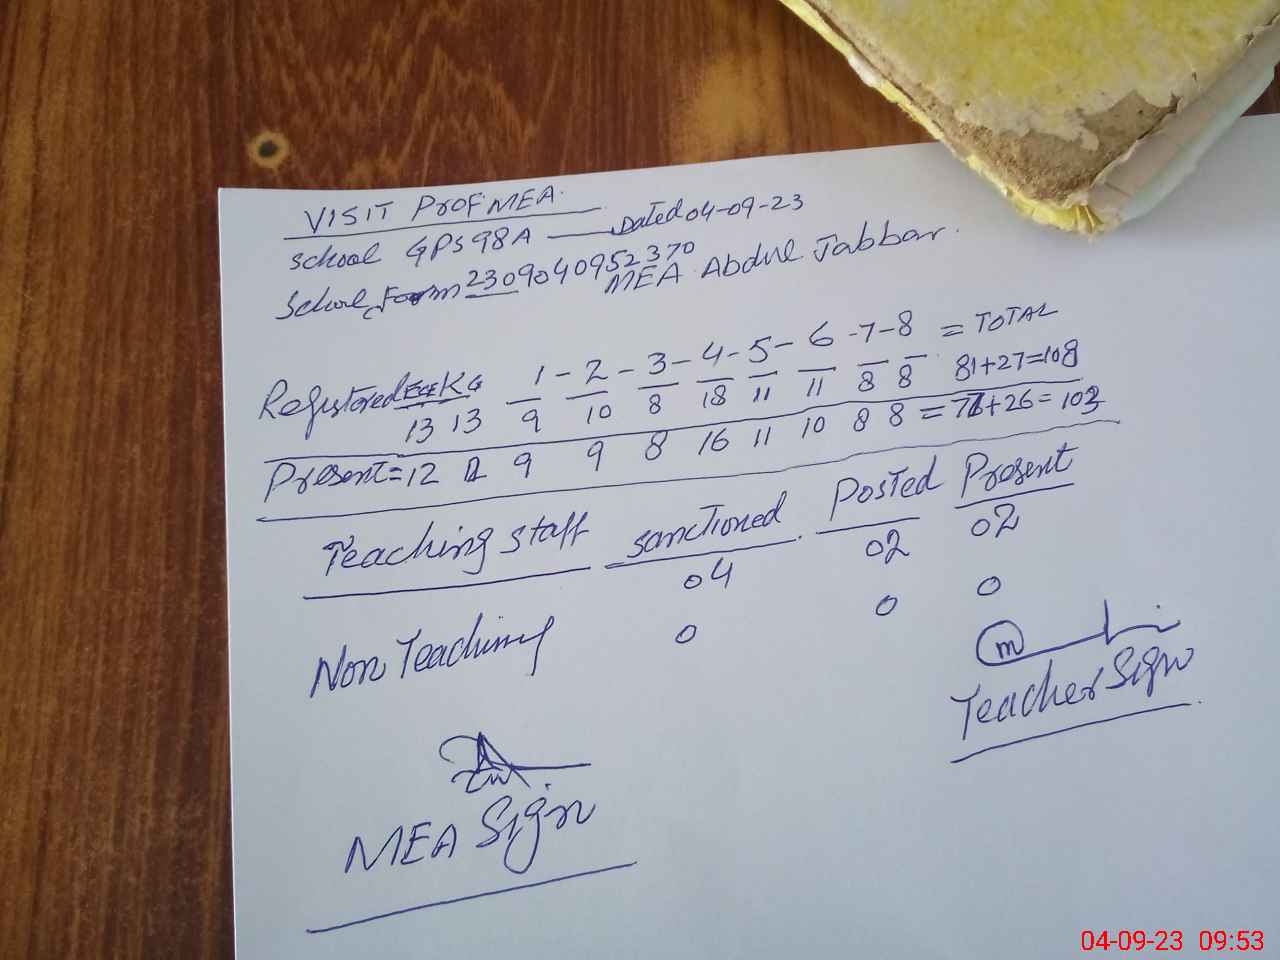 VISIT ProF MEA.
School GPS 98A — Dated 04-09-23
School Form 2309040952370
MEA Abdul Jabbar.
Registered ECE KG 1 - 2 - 3 - 4 - 5 - 6 - 7 - 8 = TOTAL
13 13 9 10 8 18 11 11 8 8 81+27=108
Present = 12 12 9 9 8 16 11 10 8 8 = +26 = 103
Teaching staff sanctioned Posted Present
04 02 02
Non Teaching 0 0 0
Teacher Sign
MEA Sign
04-09-23 09:53